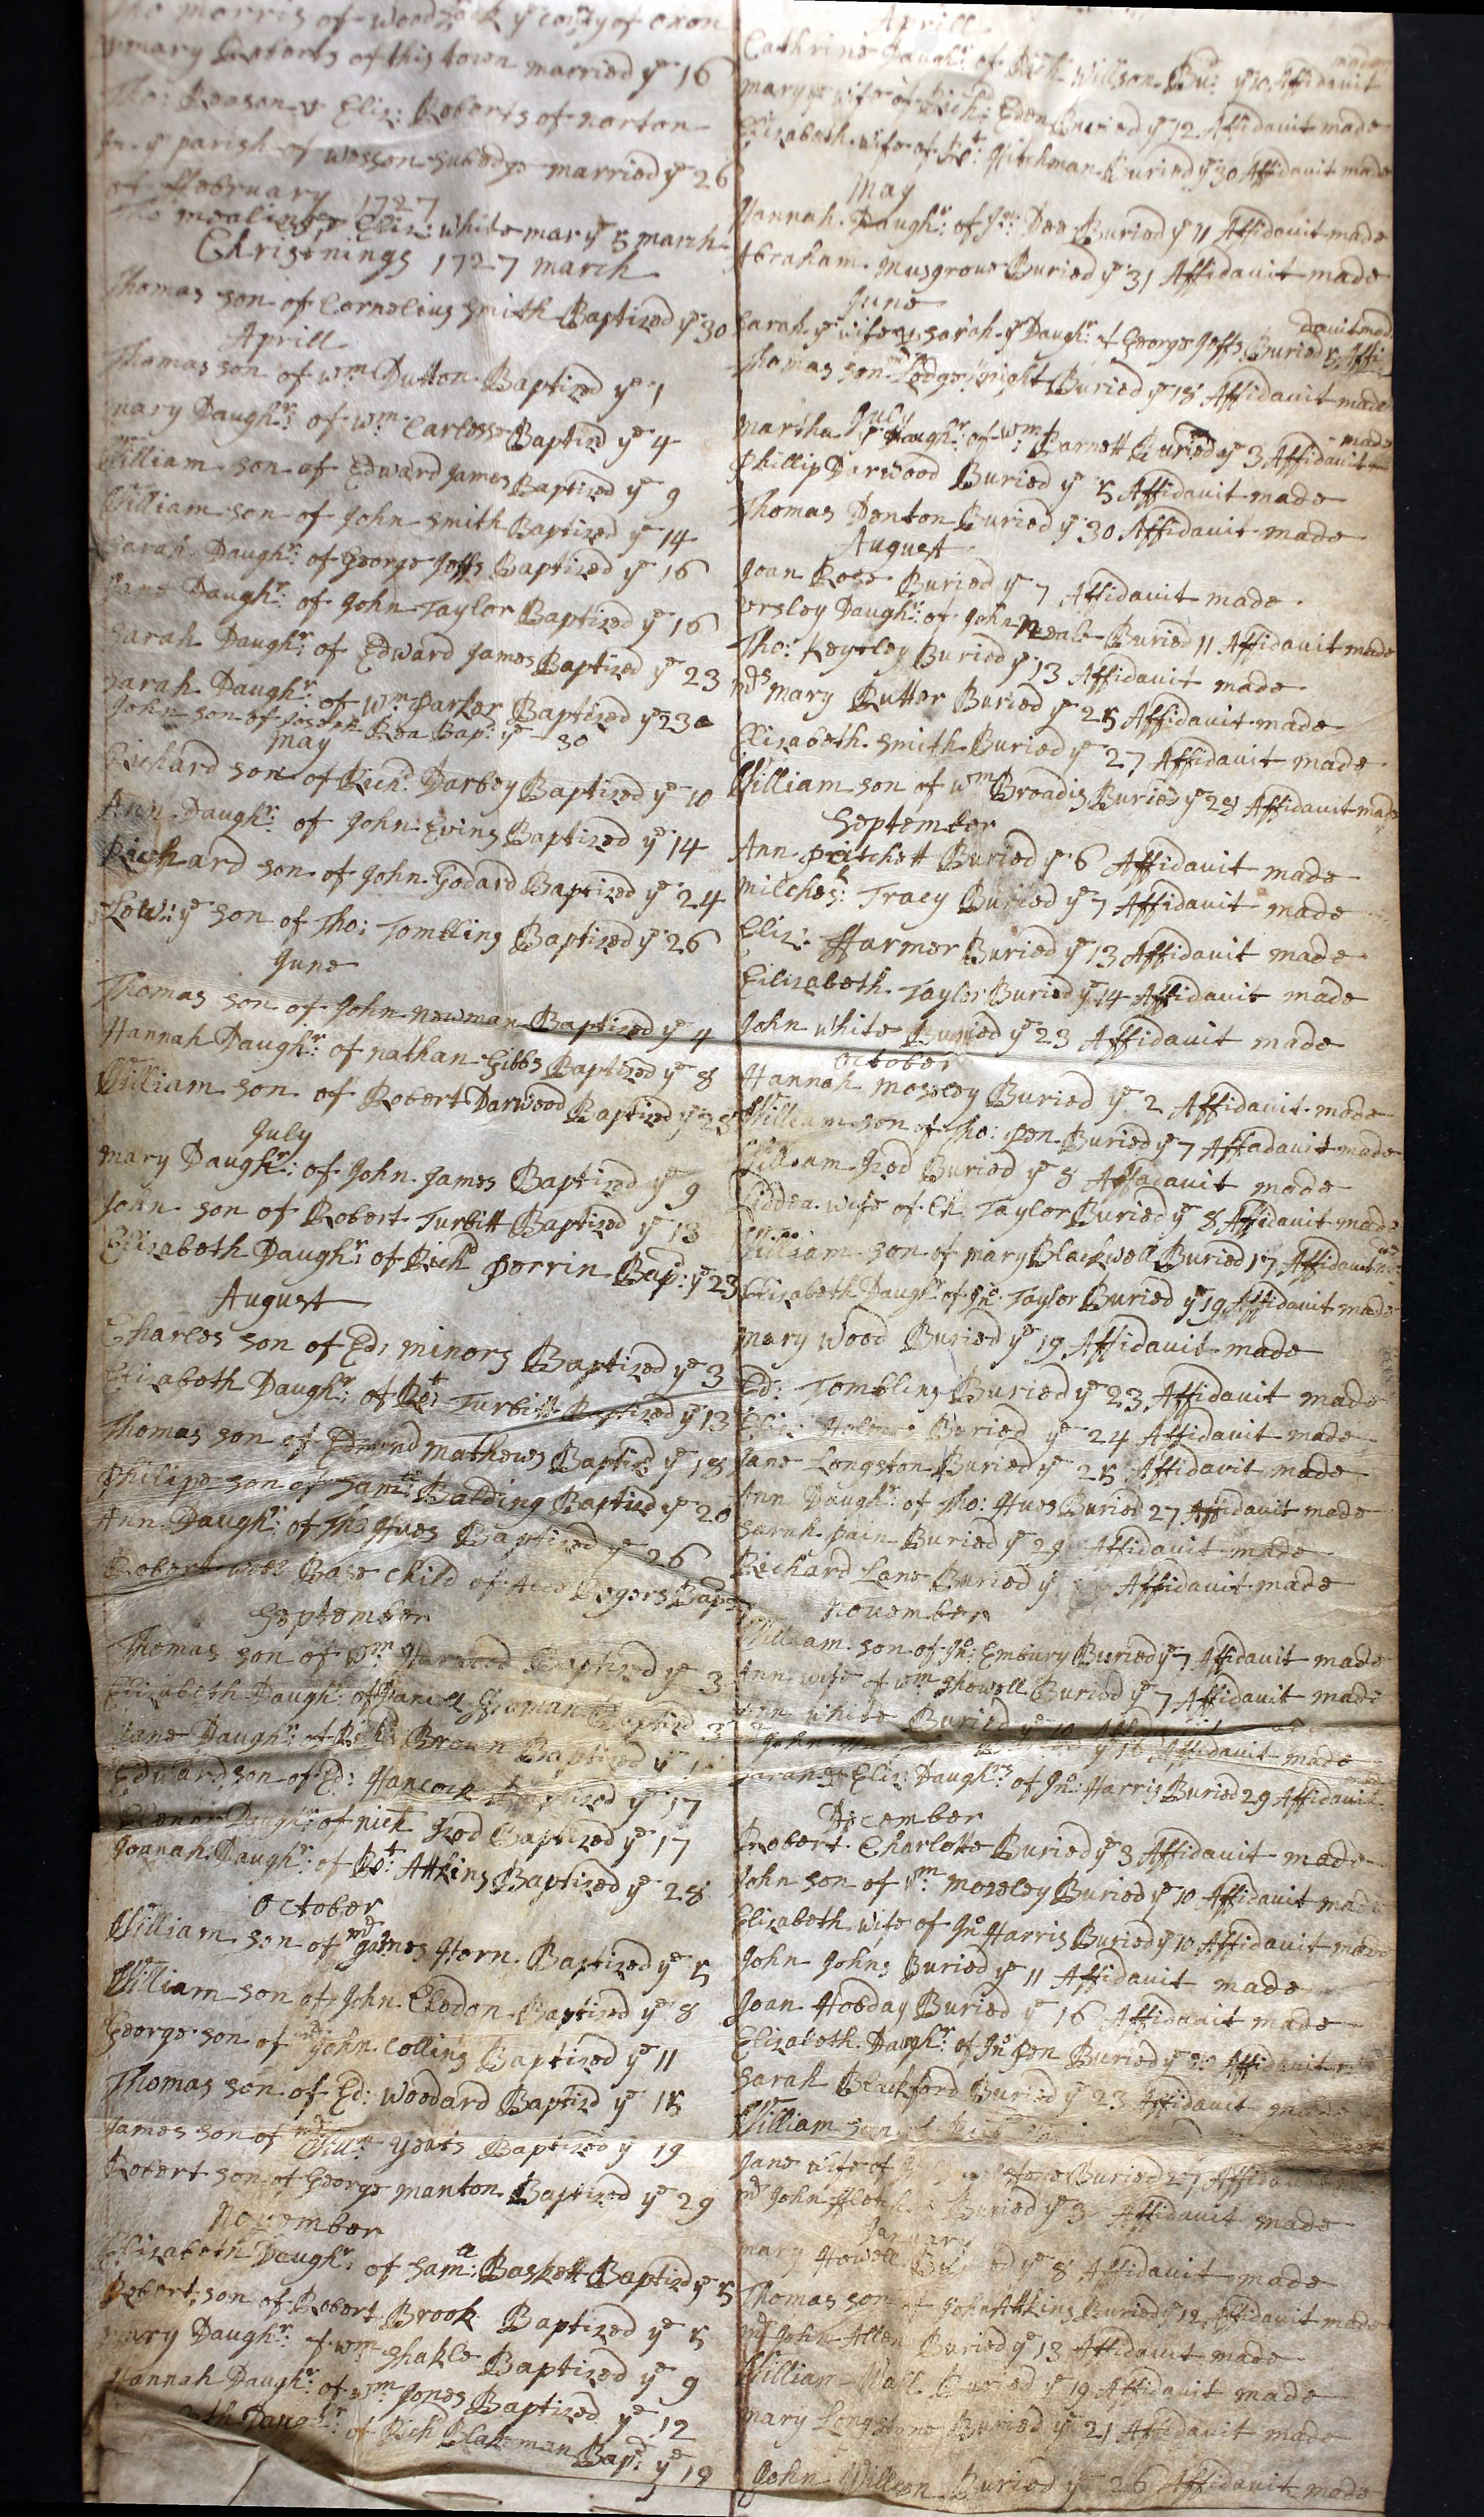 Tho morris of Woodstock ye County of Oxon
mary Roberts of this town married ye 16
Tho: Reason & Eliz: Roberts of norton
In ye parish of Wesson subedge married ye 26
of ffebruary 1727
Tho mealing & Eliz: White mar ye 5 march
Christnings 1727 march
Thomas son of Cornelius Smith Baptized ye 30
Aprill
Thomas son of Wm Dutton Baptized ye 1
mary Daughr: of Wm: Carless Baptizd ye 4
William son of Edward James Baptized ye 9
William son of John Smith Baptized ye 14
Sarah Daughr: of George Joffs Baptized ye 16
Jane Daughr: of John Taylor Baptized ye 16
Sarah Daughr: of Edward James Baptized ye 23
Sarah Daughr: of Wm Parker Baptized ye 23
John son of Joseph Rea Bap: ye 30
may
Richard son of Richd: Darbey Baptized ye 10
Ann Daughr: of John Evins Baptized ye 14
Richard son of John Godard Baptized ye 24
Lew: ye son of Tho: Tombling Baptized ye 26
June
Thomas son of John newman Baptized ye 4
Hannah Daughr: of nathan Gibbs Baptized ye 8
William son of Robert Darwood Baptized ye 28
July
mary Daughr: of John James Baptized ye 9
John son of Robert Turbitt Baptized ye 13
Elizabeth Daughr: of Richd Perrin Bapd: ye 23
August
Charles son of Ed: minors Baptized ye 3
Elizabeth Daughr: of Rot: Turbitt Baptized ye 13
Thomas son of Edmond mathews Baptizd ye 18
Philipe son of Saml: Balding Baptizd ye 20
Ann Daughr: of Tho Hues Baptized ye 26
Robert Base Child of Rogers Bapd
September
Thomas son of Wm Baptized ye 3
Elizabeth Daughr: of Daniel Baptizd 3
Jane Daughr: of Richd Brown Baptized ye
Edward son of Ed: Hancock Baptized ye 17
Daughr: of nick Baptized ye 17
Joanah Daughr: of Rot: Attkins Baptized ye 28
October
William son of mr James Horn Baptized ye 5
William son of John Elsdon Baptized ye 8
George son of mr John Collins Baptized ye 11
Thomas son of Ed: Woodard Baptizd ye 15
James son of mr Yeats Baptized ye 19
Robert son of George manton Baptized ye 29
November
Elizabeth Daughr of Saml: Baskett Baptizd ye 5
Robert son of Robert Brook Baptized ye 5
mary Daughr: of Wm Shakle Baptized ye 9
Hannah Daughr: of Wm Jones Baptized ye 12
Daughr: of Richd Blakeman Bapd: ye 19
Aprill
Cathrine Daughr: of Rich Willson Bud: ye 10 Affidavit made
mary ye wife of Richd: Eden Buried ye 12 Affidavit made
Elizabeth wife of Rot: Hitchman Buried ye 30 Affidavit made
May
Hannah Daughr: of Jno: Dee Buried ye 11 Affidavit made
Abraham Musgrove Buried ye 31 Affidavit made
June
Sarah ye wife & Sarah ye Daughr: of George Joffs Buried 5 Affidavit mad
Thomas son Hodge Buried ye 18 Affidavit made
July
Martha ye Daughr: of Wm: Barnett Buried ye 3 Affidavit made
Phillip Darwood Buried ye 5 Affidavit made
Thomas Denton Buried ye 30 Affidavit made
August
Joan Rose Buried ye 7 Affidavit made
Ursley Daughr: of John Neale Buried 11 Affidavit made
Tho: Keyteley Buried ye 13 Affidavit made
mrs Mary Rutter Buried ye 25 Affidavit made
Elizabeth Smith Buried ye 27 Affidavit made
William son of Wm Broadis Buried ye 28 Affidavit made
September
Ann Pritchett Buried ye 6 Affidavit made
Tracy Buried ye 7 Affidavit made
Eliz: Harmer Buried ye 13 Affidavit made
Eilizabeth Taylor Buried ye 14 Affidavit made
John White Buried ye 23 Affidavit made
October
Hannah Moseley Buried ye 2 Affidavit made
William son of Tho: Pen Buried ye 7 Affadavit made
William Buried ye 8 Affadavit made
Liddea wife of Taylor Buried ye 8 Affidavit made
William son of mary Blackwell Buried 17 Affidavit
Elizabeth Daughr of Jno: Taylor Buried ye 19 Affidavit made
mary Wood Buried ye 19 Affidavit made
Ed: Tombling Buried ye 23 Affidavit made
Eliz: Holmes Buried ye 24 Affidavit made
Jane Longston Buried ye 25 Affidavit made
Ann Daughr: of Tho: Hues Buried 27 Affidavit made
Sarah Pain Buried ye 29 Affidavit made
Richard Lane Buried ye Affidavit made
November
William son of Jno: Embury Buried ye 7 Affidavit made
Ann wife of Wm Showell Buried ye 7 Affidavit made
Ann White Buried ye 10
John ye 16 Affidavit made
Sarah & Eliz: Daughrs of Jno: Harris Buried 29 Affidavit
December
Robert Charlotte Buried ye 3 Affidavit made
John son of Wm Moseley Buried ye 10 Affidavit made
Elizabeth wife of Jno Harris Buried ye 10 Affidavit made
John Johns Buried ye 11 Affidavit made
Joan Hobday Buried ye 16 Affidavit made
Elizabeth Daughr: of Jno Pen Buried ye Affidavit
Sarah Blackford Buried ye 23 Affidavit made
William son of
Jane wife of Buried 27 Affidavit
mr John Buried ye 3 Affidavit made
January
mary Howell Buried ye 8 Affidavit made
Thomas son of John Attkins Buried ye 12 Affidavit made
mr John Allen Buried ye 13 Affidavit made
William Wall Buried ye 19 Affidavit made
mary Longstone Buried ye 21 Affidavit made
John Willson Buried ye 26 Affidavit made